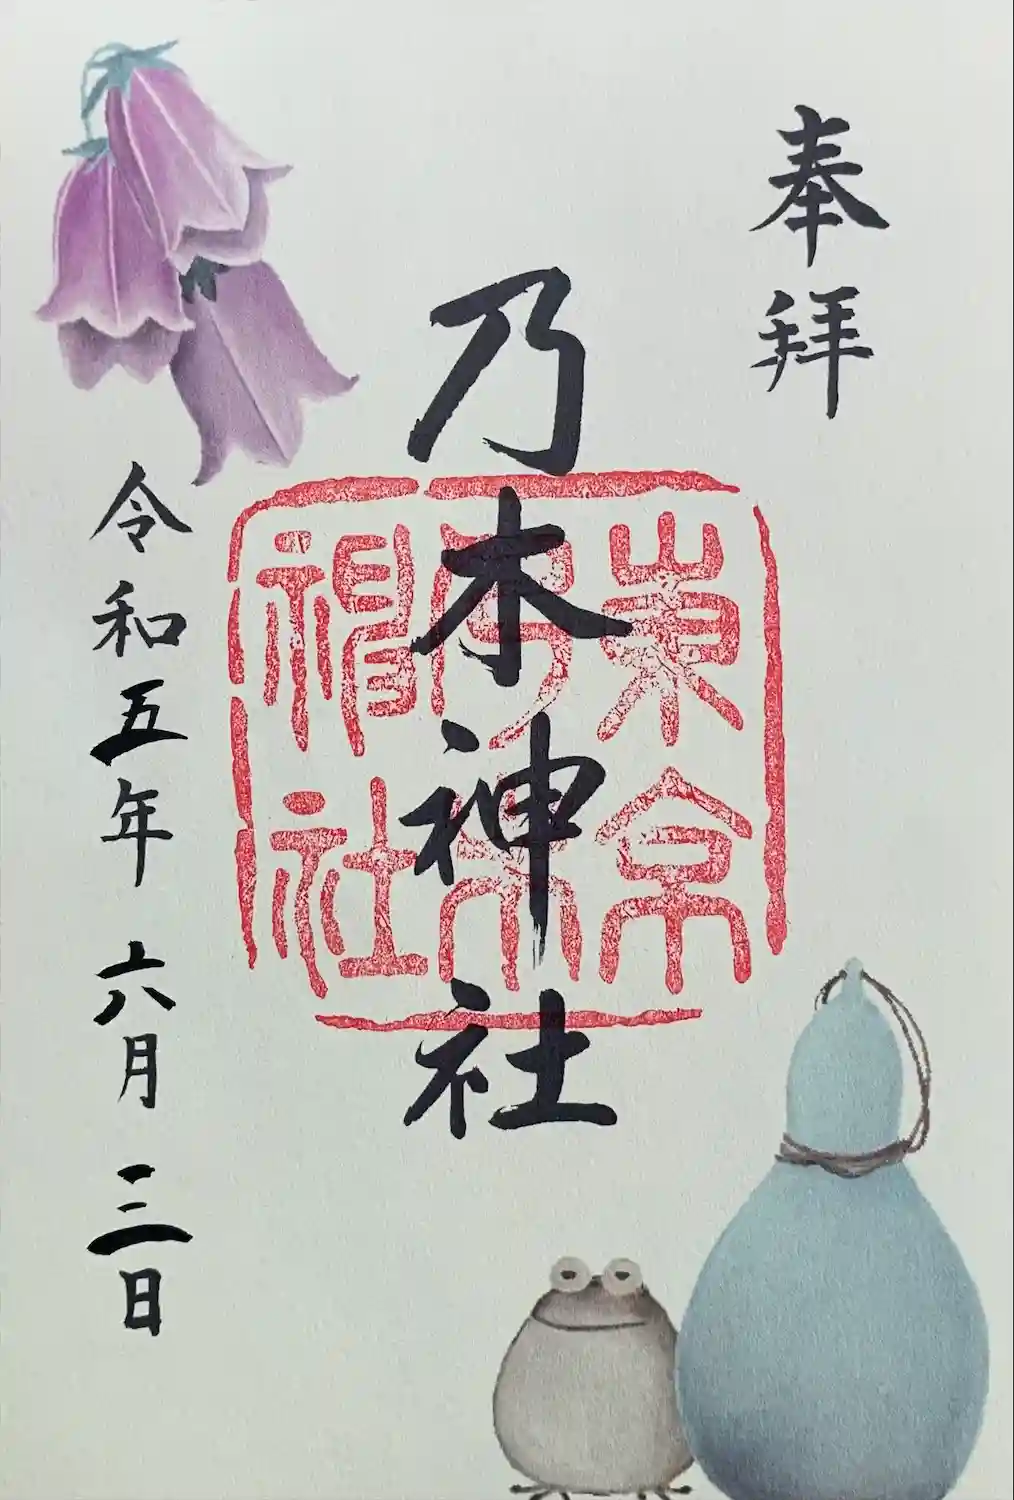 奉拝
乃木神社
東京
乃木
神社
令和五年六月三日